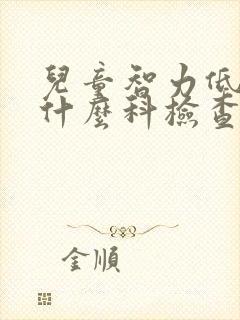 兒童智力低
什麼科檢查
金順